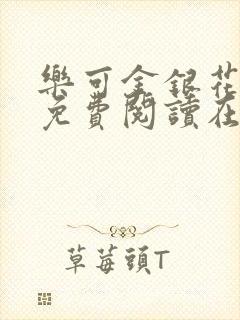 樂可金銀花
免費閱讀在
草莓頭T